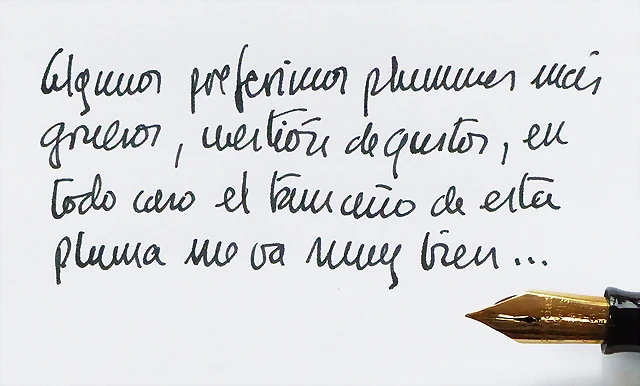 Algunos preferimos plumines más
gruesos, cuestión de gustos, en
todo caso el tamaño de esta
pluma me va muy bien...